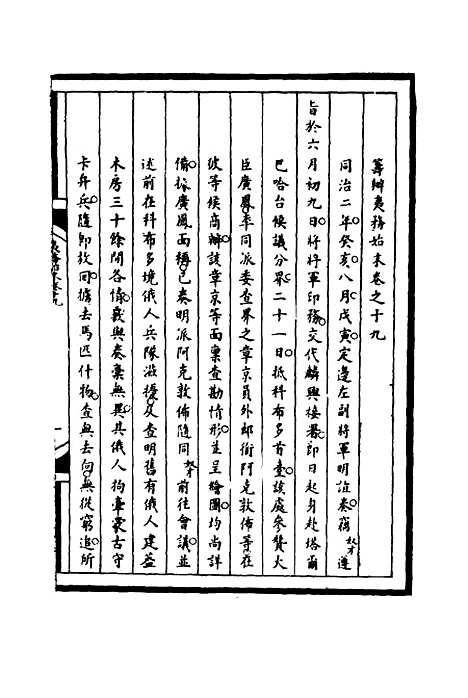 籌辦夷務始末卷之十九
同治二年癸亥八月戊寅定邊左副將軍明誼奏竊奴才遵
旨於六月初九日將將軍印務交代麟興接署即日起身赴塔爾
巴哈台候議分界二十一日抵科布多首臺該處參贊大
臣廣鳳率同派委查界之章京員外郎銜阿克敦佈等在
彼等候商辦該章京等面稟查勘情形並呈繪圖均尚詳
備據廣鳳面稱已奏明派阿克敦佈隨同奴才前往會議並
述前在科布多境俄人兵隊滋擾及查明舊有俄人建蓋
木房三十餘間各條載與奏稟無異其俄人拘拿蒙古守
卡弁兵隨即放回擄去馬匹什物查無去向無從窮追所